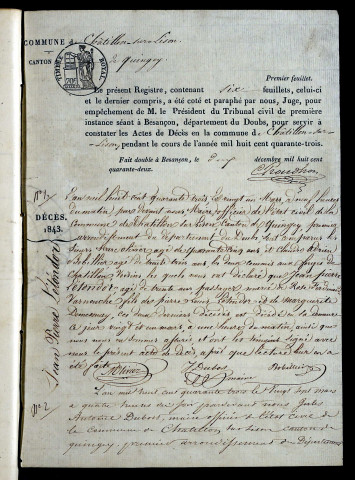 COMMUNE de Châtillon-sur-Lison
CANTON de Quingey
TIMBRE ROYAL
Premier feuillet.
Le présent Registre, contenant six feuillets, celui-ci
et le dernier compris, a été coté et paraphé par nous, Juge, pour
empêchement de M. le Président du Tribunal civil de première
instance séant à Besançon, département du Doubs, pour servir à
constater les Actes de Décès en la commune de Châtillon-sur-
Lison, pendant le cours de l'année mil huit cent quarante-trois.
Fait double à Besançon, le décembre mil huit cent
quarante-deux.
N° 1er
DÉCÈS.
1843.
Jean Pierre
L'an mil huit cent quarante trois, le vingt un Mars, à neuf heures
du matin, par devant nous Maire, officier de l'état civil de la
commune de Chatillon sur Lison, Canton de Quingey, premier
arrondissement du département du Doubs, sont comparus les
âgé de ans et Claude
âgé de trente ans, les deux communs aux forges de
Chatillon, Voisins, les quels nous ont déclaré que Jean pierre
âgé de trente ans
fils de pierre et de marguerite
ces deux derniers décédés, est décédé en la commune
ce jour vingt et un mars, à une heure du matin, ainsi que
nous nous en sommes assuré, et ont les témoins signé avec
nous le présent acte de décès, après que lecture leur en a
été faite.
J Dubost
maire
N° 2.
L'an mil huit cent quarante trois le vingt sept mars
à quatre heures du soir pardevant nous Jules
Antoine Dubost, maire officier de l'état civil de
la commune de Chatillon sur Lison canton de
quingey, premier arrondissement du Département